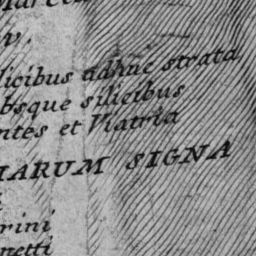 v.
licibus adhuc strata
bsque silicibus
ntes et Viatria
IARUM SIGNA
rini
netti